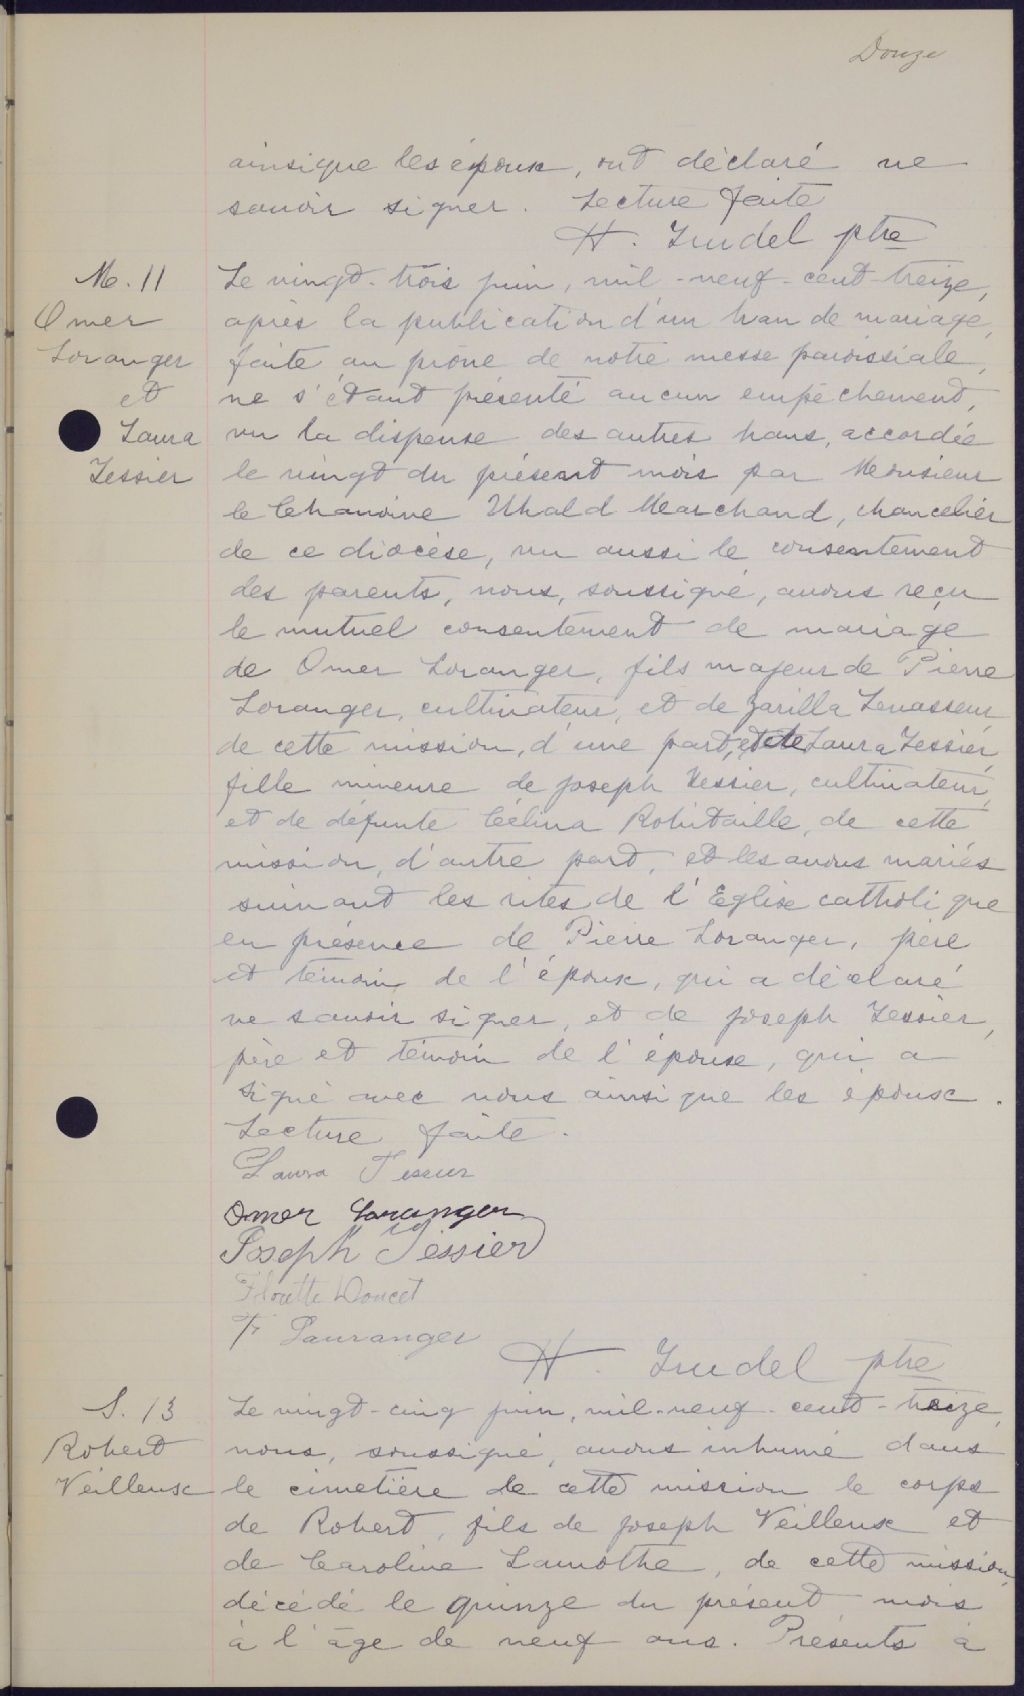 Douze
ainsi que les époux, ont déclaré ne
savoir signer. Lecture faite
H. Trudel ptre
M. 11
Omer
Loranger
et
Laura
Tessier
Le vingt-trois juin, mil-neuf-cent-treize,
après la publication d'un ban de mariage,
faite au prône de notre messe paroissiale,
ne s'étant présenté aucun empêchement,
vu la dispense des autres bans, accordée
le vingt du présent mois par Monsieur
le Chanoine Ubald Marchand, chancelier
de ce diocèse, vu aussi le consentement
des parents, nous, soussigné, avons reçu
le mutuel consentement de mariage
de Omer Loranger, fils majeur de Pierre
Loranger, cultivateur, et de Zarilla Levasseur
de cette mission, d'une part, et de Laura Tessier,
fille mineure de Joseph Tessier, cultivateur,
et de défunte Célina Robitaille, de cette
mission, d'autre part, et les avons mariés
suivant les rites de l'Eglise catholique
en présence de Pierre Loranger, père
et témoin de l'époux, qui a déclaré
ne savoir signer, et de Joseph Tessier,
père et témoin de l'épouse, qui a
signé avec nous ainsi que les époux.
Lecture faite.
Laura Tessier
Omer Loranger
Joseph Tessier
Florette Doucet
F Lauranger
H. Trudel ptre
S. 13
Robert
Veilleux
Le vingt-cinq juin, mil-neuf-cent-treize,
nous, soussigné, avons inhumé dans
le cimetière de cette mission le corps
de Robert, fils de Joseph Veilleux et
de Caroline Lamothe, de cette mission,
décédé le quinze du présent mois
à l'âge de neuf ans. Présents à